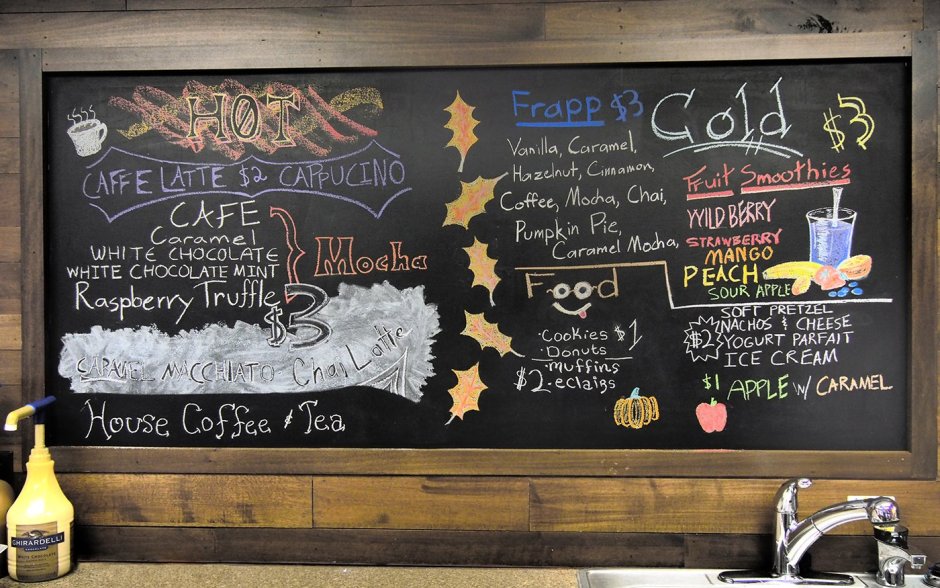 HOT
CAFFE LATTE $2 CAPPUCINO
CAFE
Caramel
WHITE CHOCOLATE
WHITE CHOCOLATE MINT
Raspberry Truffle
Mocha
$3
CARAMEL MACCHIATO · Chai Latte
House Coffee & Tea
Frapp $3
Vanilla, Caramel,
Hazelnut, Cinnamon,
Coffee, Mocha, Chai,
Pumpkin Pie,
Caramel Mocha,
Cold $3
Fruit Smoothies
WILDBERRY
STRAWBERRY
MANGO
PEACH
SOUR APPLE
Food
· Cookies $1
· Donuts
· Muffins
$2 · eclairs
$2
SOFT PRETZEL
NACHOS & CHEESE
YOGURT PARFAIT
ICE CREAM
$1 APPLE w/ CARAMEL
GHIRARDELLI
WHITE CHOCOLATE